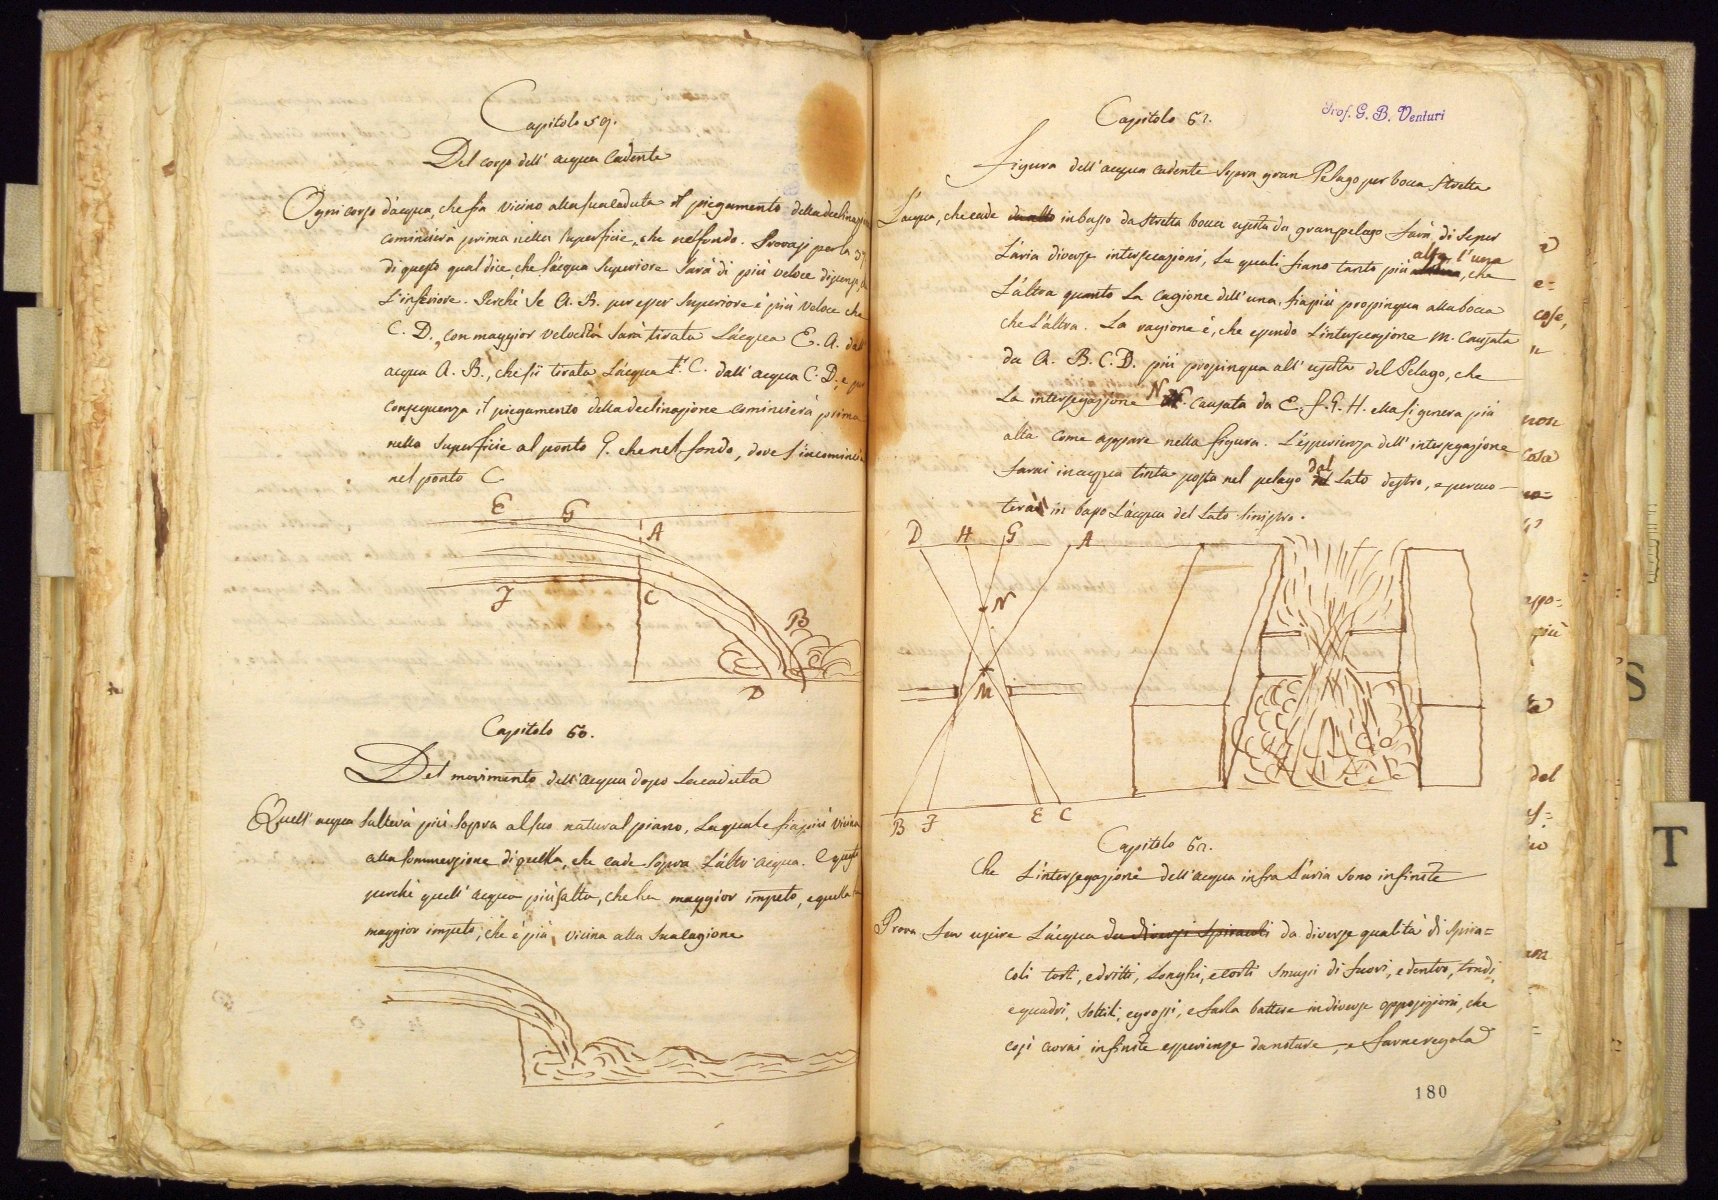 Capitolo 59.
Del corso dell' acqua cadente
Ogni corso d'acqua, che sia vicino alla sua caduta il piegamento della
comincierà prima nella superficie, che nel fondo. Provasi per la 3
di questo qual dice, che l'acqua superiore sarà di più veloce
L'inferiore. Perchè se A. B. per esser superiore è più veloce che
C. D., con maggior velocità sarà tirata L'acqua E. A. dall
acqua A. B., che sii tirata L'acqua F. C. dall' acqua C. D.; e per
conseguenza il piegamento della declinazione comincierà prima
nella superficie al ponto G. che nel fondo, dove s'incomincia
nel ponto C
E G
A
F C
B
D
Capitolo 60.
Del movimento dell' acqua dopo la caduta
Quell' acqua salterà più sopra al suo natural piano, La quale sia più vicina
alla sommersione di quella, che cade sopra L'altr' acqua. E questo
perchè quell' acqua più salta, che ha maggior impeto, e quella ha
maggior impeto, che è più vicina alla sua cagione
Prof. G. B. Venturi
Capitolo 61.
Figura dell' acqua cadente sopra gran Pelago per bocca stretta
L'acqua, che cade da alto in basso da stretta bocca uscita da gran pelago farà di se per
L'aria diverse intersecazioni, Le quali siano tanto più alta l'una, che
L'altra quanto La cagione dell' una, sia più propinqua alla bocca
che L'altra. La ragione è, che essendo L'intersecazione M. causata
da A. B. C. D. più propinqua all' uscita del Pelago, che
La intersegazione N. causata da E. F. G. H. ella si genera più
alta come appare nella figura. L'esperienza dell' intersegazione
farai in acqua tinta posta nel pelago dal lato destro, e percuo-
terai in basso L'acqua del lato sinistro.
D H G A
N
M
B F E C
Capitolo 62.
Che L'intersegazione dell' acqua infra L'aria sono infinite
Prova fa uscire L'acqua da diversi spiracoli da diverse qualità di spira=
coli torti, e dritti, Longhi, e corti smussi di fuori, e dentro, tondi,
e quadri, sottili, e grossi, e farla battere in diverse opposizioni, che
così averai infinite esperienze da notare, e farne regola
180
S
T